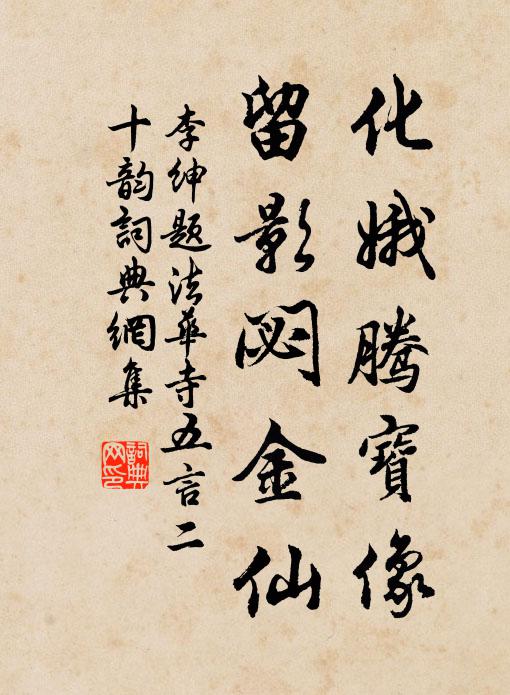 化娥騰寶像
留影閟金仙
李紳題法華寺五言二
十韵詞典網集
詞典
网印